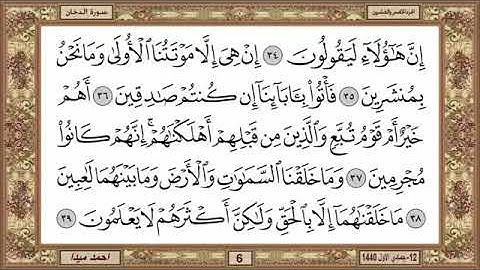 سورة الدخان
الجزء الخامس والعشرين
إِنَّ هَٰٓؤُلَآءِ لَيَقُولُونَ ٣٤ إِنْ هِيَ إِلَّا مَوْتَتُنَا ٱلْأُولَىٰ وَمَا نَحْنُ
بِمُنشَرِينَ ٣٥ فَأْتُوا۟ بِـَٔابَآئِنَآ إِن كُنتُمْ صَـٰدِقِينَ ٣٦ أَهُمْ
خَيْرٌ أَمْ قَوْمُ تُبَّعٍ وَٱلَّذِينَ مِن قَبْلِهِمْ أَهْلَكْنَـٰهُمْ ۖ إِنَّهُمْ كَانُوا۟
مُجْرِمِينَ ٣٧ وَمَا خَلَقْنَا ٱلسَّمَـٰوَٰتِ وَٱلْأَرْضَ وَمَا بَيْنَهُمَا لَـٰعِبِينَ
٣٨ مَا خَلَقْنَـٰهُمَآ إِلَّا بِٱلْحَقِّ وَلَـٰكِنَّ أَكْثَرَهُمْ لَا يَعْلَمُونَ ٣٩
12- جمادي الاول 1440
6
احمد ميدا